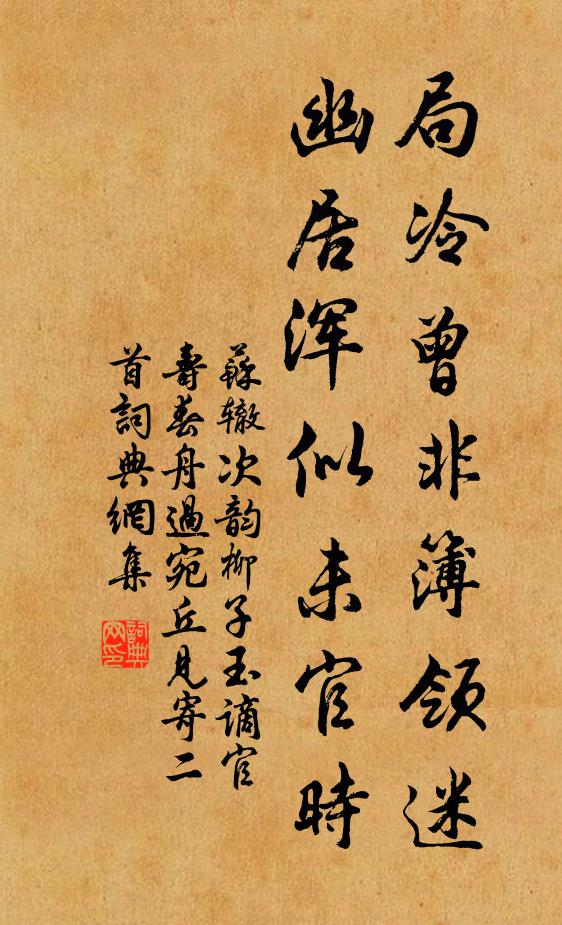 局冷曾非簿領迷
幽居渾似未官時
蘇轍次韵柳子玉謫官
壽春舟過宛丘見寄二
首詞典網集
詞典
网印